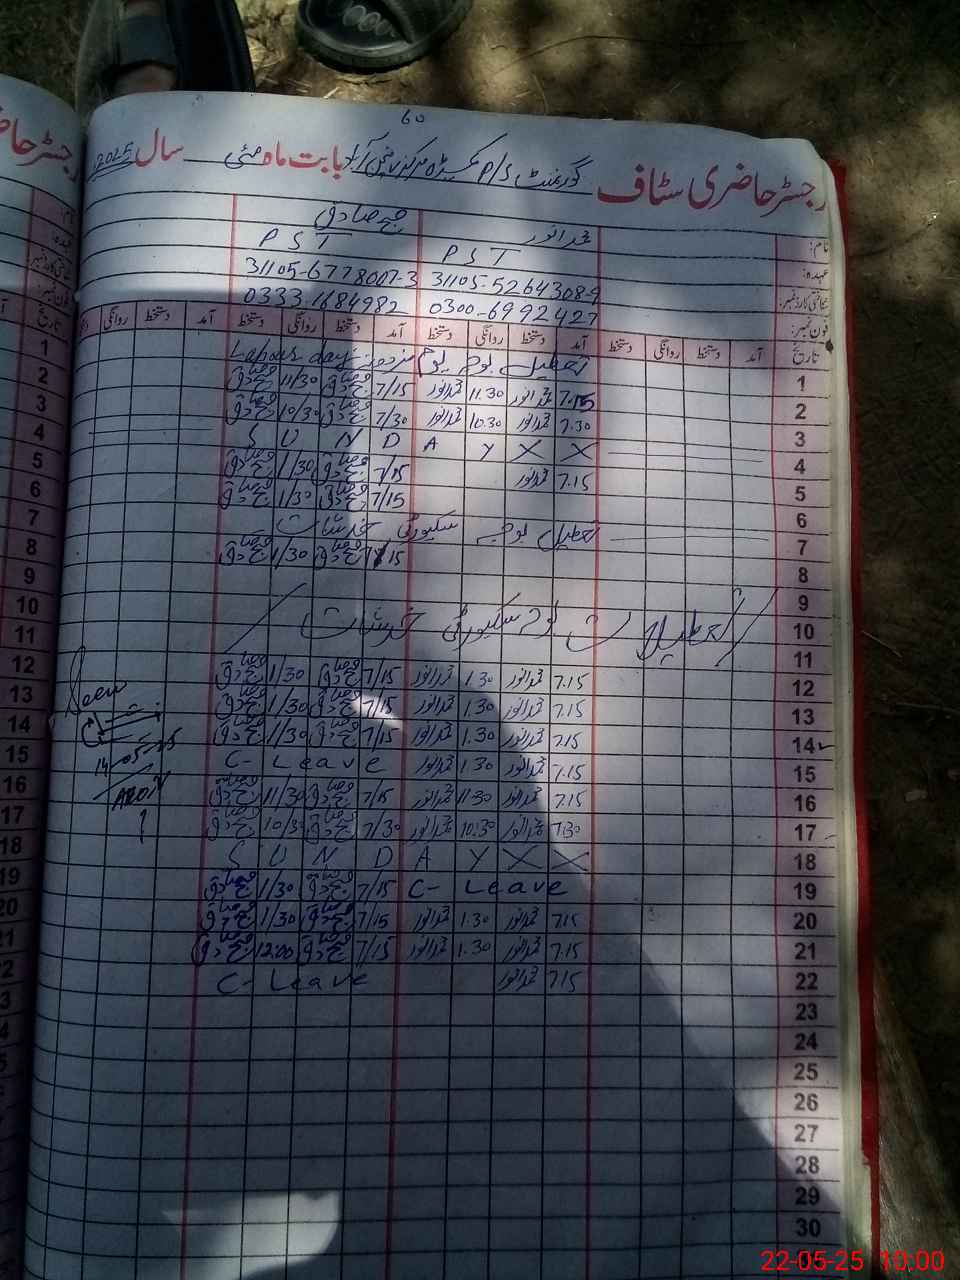 60
رجسٹر حاضری سٹاف گورنمنٹ P/S بابت ماہ مئی سال 2025
نام: محمد انور صبح صادق
عہدہ: PST PST
شناختی کارڈ نمبر: 31105-5264308-9 31105-6778007-3
فون نمبر: 0300-6992427 0333-1684982
تاریخ آمد دستخط روانگی دستخط آمد دستخط روانگی دستخط آمد دستخط روانگی دستخط آمد دستخط روانگی
1 تعطیل بوجہ یوم مزدور Labour day
2 7.15 محمد انور 11.30 محمد انور 7/15 صبح صادق 11/30 صبح صادق
3 7.30 محمد انور 10.30 محمد انور 7/30 صبح صادق 10/30 صبح صادق
4 S U N D A Y X X
5 7.15 محمد انور 7/15 صبح صادق 1/30 صبح صادق
6 7/15 صبح صادق 1/30 صبح صادق
7 تعطیل بوجہ سکیورٹی خدشات
8 7/15 صبح صادق 1/30 صبح صادق
9
10 تعطیلات بوجہ سکیورٹی خدشات
11
12 7.15 محمد انور 1.30 محمد انور 7/15 صبح صادق 1/30 صبح صادق
13 7.15 محمد انور 1.30 محمد انور 7/15 صبح صادق 1/30 صبح صادق
14 7.15 محمد انور 1.30 محمد انور 7/15 صبح صادق 1/30 صبح صادق
15 7.15 محمد انور 1.30 محمد انور C- Leave
16 7.15 محمد انور 11.30 محمد انور 7/15 صبح صادق 11/30 صبح صادق
17 7.30 محمد انور 10.30 محمد انور 7/30 صبح صادق 10/30 صبح صادق
18 S U N D A Y X X
19 C- Leave 7/15 صبح صادق 1/30 صبح صادق
20 7.15 محمد انور 1.30 محمد انور 7/15 صبح صادق 1/30 صبح صادق
21 7.15 محمد انور 1.30 محمد انور 7/15 صبح صادق 12.00 صبح صادق
22 7.15 محمد انور C- Leave
23
24
25
26
27
28
29
30
Seen
14-05-25
22-05-25 10:00